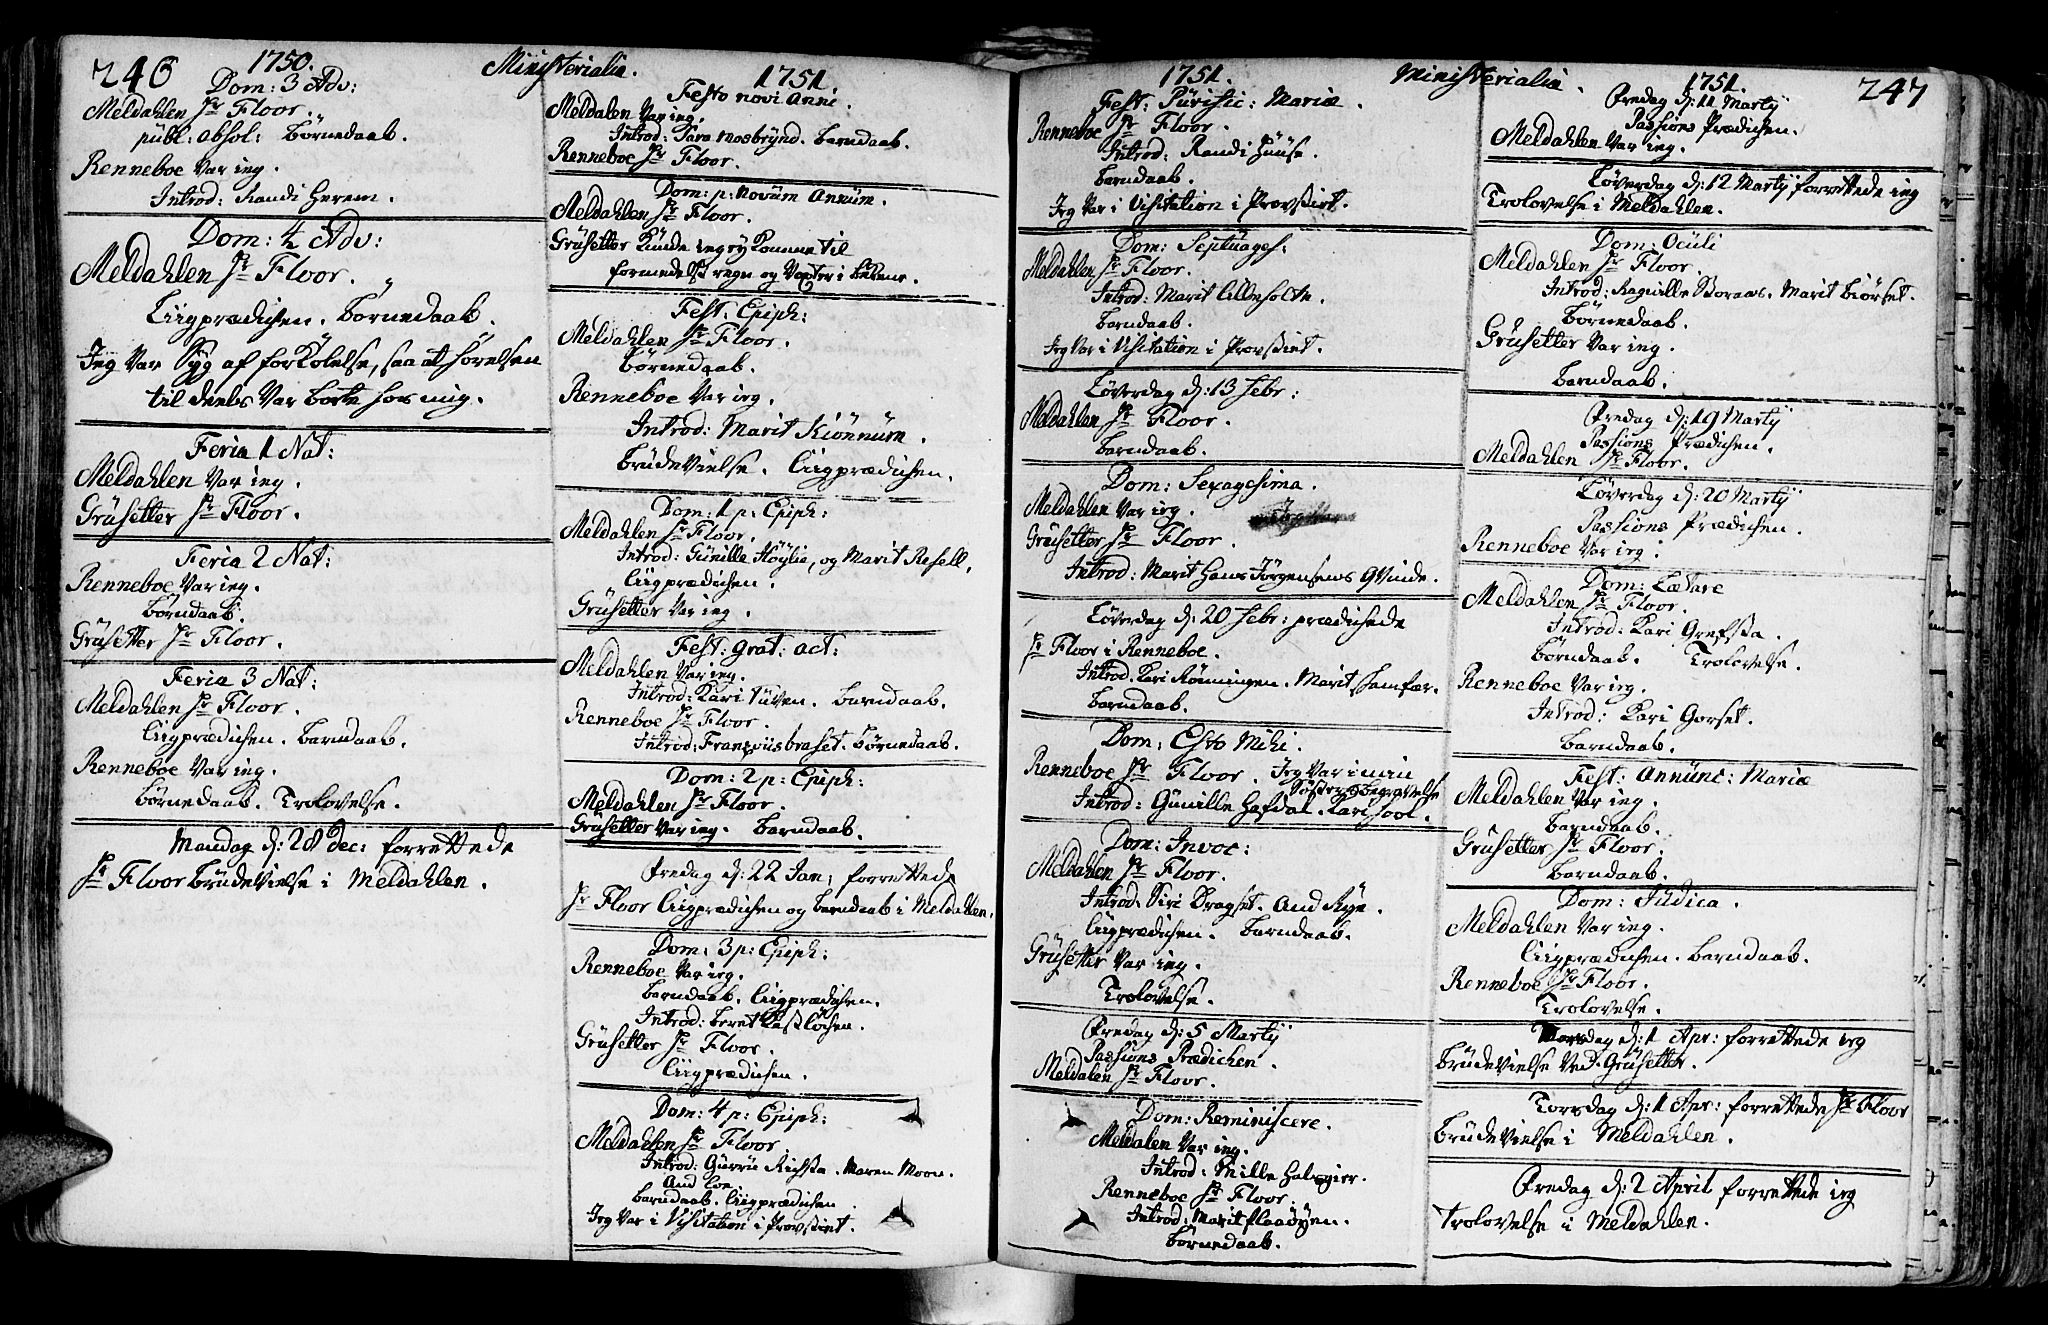 246
1750.
Ministerialia.
Dom: 3 Adv:
Meldahlen Hr Floor.
publ: absol: Børnedaab.
Renneboe Var ieg.
Introd: Randi Herem.
Dom: 4 Adv:
Meldahlen Hr Floor.
Liigprædichen. Børnedaab.
Jeg Var Syg af forkølelse, saa at hørelsen
til deels Var borte hos mig.
Feria 1 Nat:
Meldahlen Var ieg.
Grüsetter Hr Floor.
Feria 2 Nat:
Renneboe Var ieg.
Børndaab.
Grüsetter Hr Floor.
Feria 3 Nat:
Meldahlen Hr Floor.
Liigprædichen. Barndaab.
Renneboe Var ieg.
Børnedaab. Trolovelse.
Mandag d: 28 Dec: forrettede
Hr Floor Brüdevielse i Meldahlen.
1751.
Festo novi Anni.
Meldalen Var ieg.
Introd: Sara Mosbrÿnd. Barndaab.
Renneboe Hr Floor.
Dom: p: Novüm Annüm.
Meldahlen Hr Floor.
Grüsetter Künde ieg ey Komme til
formedelst regn og Vaxter i
Fest: Epiph:
Meldahlen Hr Floor.
Børnedaab.
Renneboe Var ieg.
Introd: Marit Kiønnüm.
Brüdevielse. Liigprædichen.
Dom: 1 p: Epiph:
Meldahlen Hr Floor.
Introd: Günille Høÿlie, og Marit Resell,
Liigprædichen.
Grüsetter Var ieg.
Fest: grat: act:
Meldahlen Var ieg.
Introd: Kari Tüven. Barndaab.
Renneboe Hr Floor.
Introd: Børnedaab.
Dom: 2 p: Epiph:
Meldahlen Hr Floor.
Grüsetter Var ieg. Barndaab.
Fredag d: 22 Jan: forrettede
Hr Floor Liigprædichen og Barndaab i Meldahlen.
Dom: 3 p: Epiph:
Renneboe Var ieg.
Barndaab. Liigprædichen.
Introd: Beret
Grüsetter Hr Floor.
Liigprædichen.
Dom: 4 p: Epiph:
Meldahlen Hr Floor
Introd: Gürrü Richsta. Maren Moon.
And Loe.
Barndaab. Liigprædichen.
Jeg Var i Visitation i Provstiet.
1751.
Ministerialia.
247
Fest: Pürific: Mariæ.
Renneboe Hr Floor.
Introd: Randi Hüüse.
Barndaab.
Jeg Var i Visitation i Provstiet.
Dom: Septüages:
Meldahlen Hr Floor.
Introd: Marit Lilleholte.
Barndaab.
Jeg Var i Visitation i Provstiet.
Løverdag d: 13 Febr:
Meldahlen Hr Floor.
Barndaab.
Dom: Sexagesima.
Meldahlen Var ieg.
Grüsetter Hr Floor.
Introd: Marit Hans Jørgensens Qvinde.
Løverdag d: 20 Febr: prædichede
Hr Floor i Renneboe.
Introd: Kari Rønningen. Marit Hamfær.
Barndaab.
Dom: Esto Mihi.
Renneboe Hr Floor. Jeg Var i min
Søsters Begravelse
Introd: Günille Hafdal. Kari Hoel.
Dom: Invoc:
Meldahlen Hr Floor.
Introd: Siri Dragset. And Rÿe.
Liigprædichen. Barndaab.
Grüsetter Var ieg.
Trolovelse.
Fredag d: 5 Martÿ
Passions Prædichen.
Meldalen Hr Floor.
Dom: Reminiscere.
Meldalen Var ieg.
Introd: Mille
Renneboe Hr Floor.
Introd: Marit Flaaøÿen.
Børnedaab.
1751.
Fredag d: 11 Martÿ
Passions Prædichen.
Meldahlen Var ieg.
Løverdag d: 12 Martÿ forrettede ieg
Trolovelse i Meldahlen.
Dom: Ocüli
Meldahlen Hr Floor.
Introd: Ragnille Boraas. Marit Biørset.
Børnedaab.
Grüsetter Var ieg.
Barndaab.
Fredag d: 19 Martÿ
Passions Prædichen.
Meldahlen Hr Floor.
Løverdag d: 20 Martÿ
Passions Prædichen.
Renneboe Var ieg.
Dom: Lætare
Meldahlen Hr Floor.
Introd: Kari Grefsta.
Børndaab. Trolovelse.
Renneboe Var ieg.
Introd: Kari Gorset.
Barndaab.
Fest: Annünc: Mariæ
Meldahlen Var ieg.
Barndaab.
Grüsetter Hr Floor.
Barndaab.
Dom: Jüdica.
Meldahlen Var ieg.
Liigprædichen. Barndaab.
Renneboe Hr Floor.
Trolovelse.
Torsdag d: 1 Apr: forrettede ieg
Brüdevielse Ved Grüsetter.
Torsdag d: 1 Apr: forrettede Hr Floor
Brüdevielse i Meldahlen.
Fredag d: 2 April forrettede ieg
Trolovelse i Meldahlen.